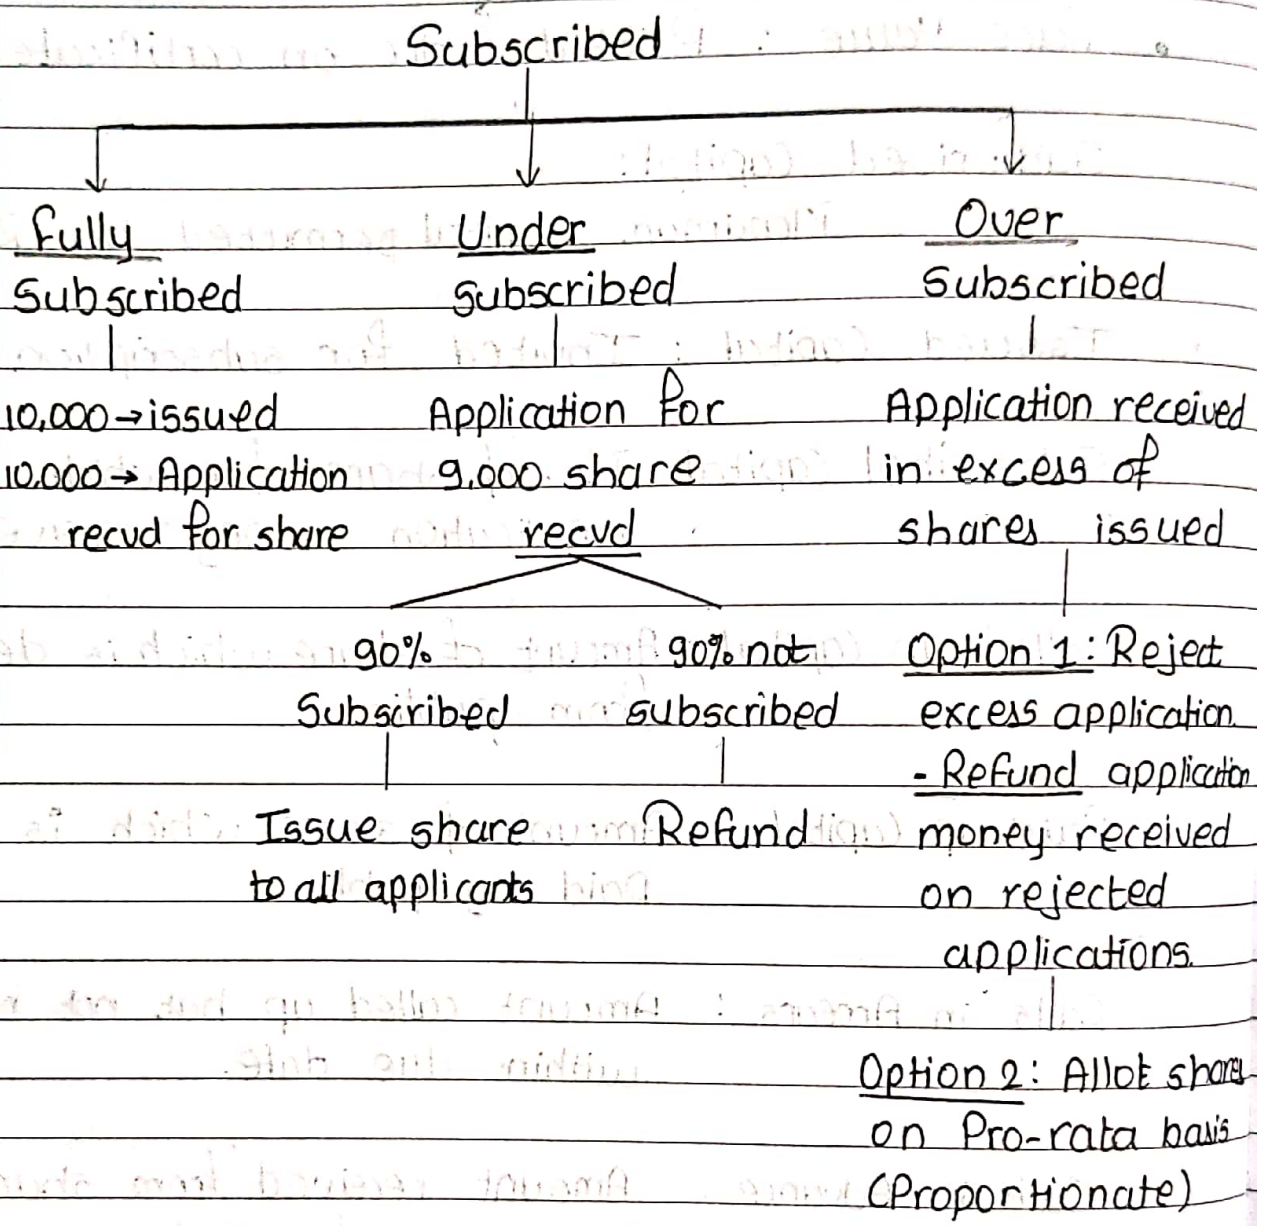 Subscribed
Fully
Subscribed
10,000→issued
10,000→ Application
recvd for share
Under
subscribed
Application for
9,000 share
recvd
90%
Subscribed
Issue share
to all applicants
90% not
subscribed
Refund
Over
Subscribed
Application received
in excess of
shares issued
Option 1: Reject
excess application
- Refund application
money received
on rejected
applications.
Option 2: Allot shares
on Pro-rata basis
(Proportionate)